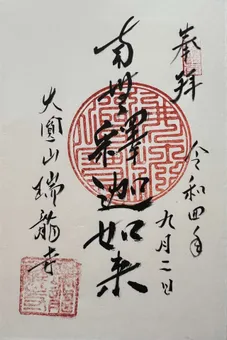 奉拝
令和四年
九月二日
南無釋迦如来
大圓山瑞龍寺